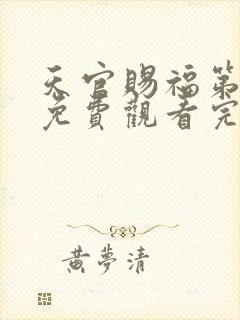 天官賜福第
免費觀看完
黃夢清